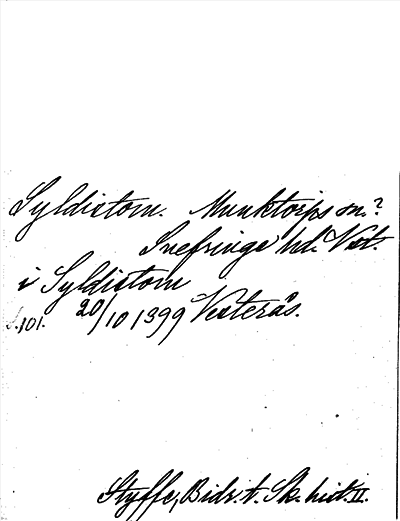 Syldistom. Munktorps sn.?
Snefringe hd. Vst.
i Syldistom
S. 101. 20/10 1399 Vesterås.
Styffe, Bidr. t. Sk. hist. II.